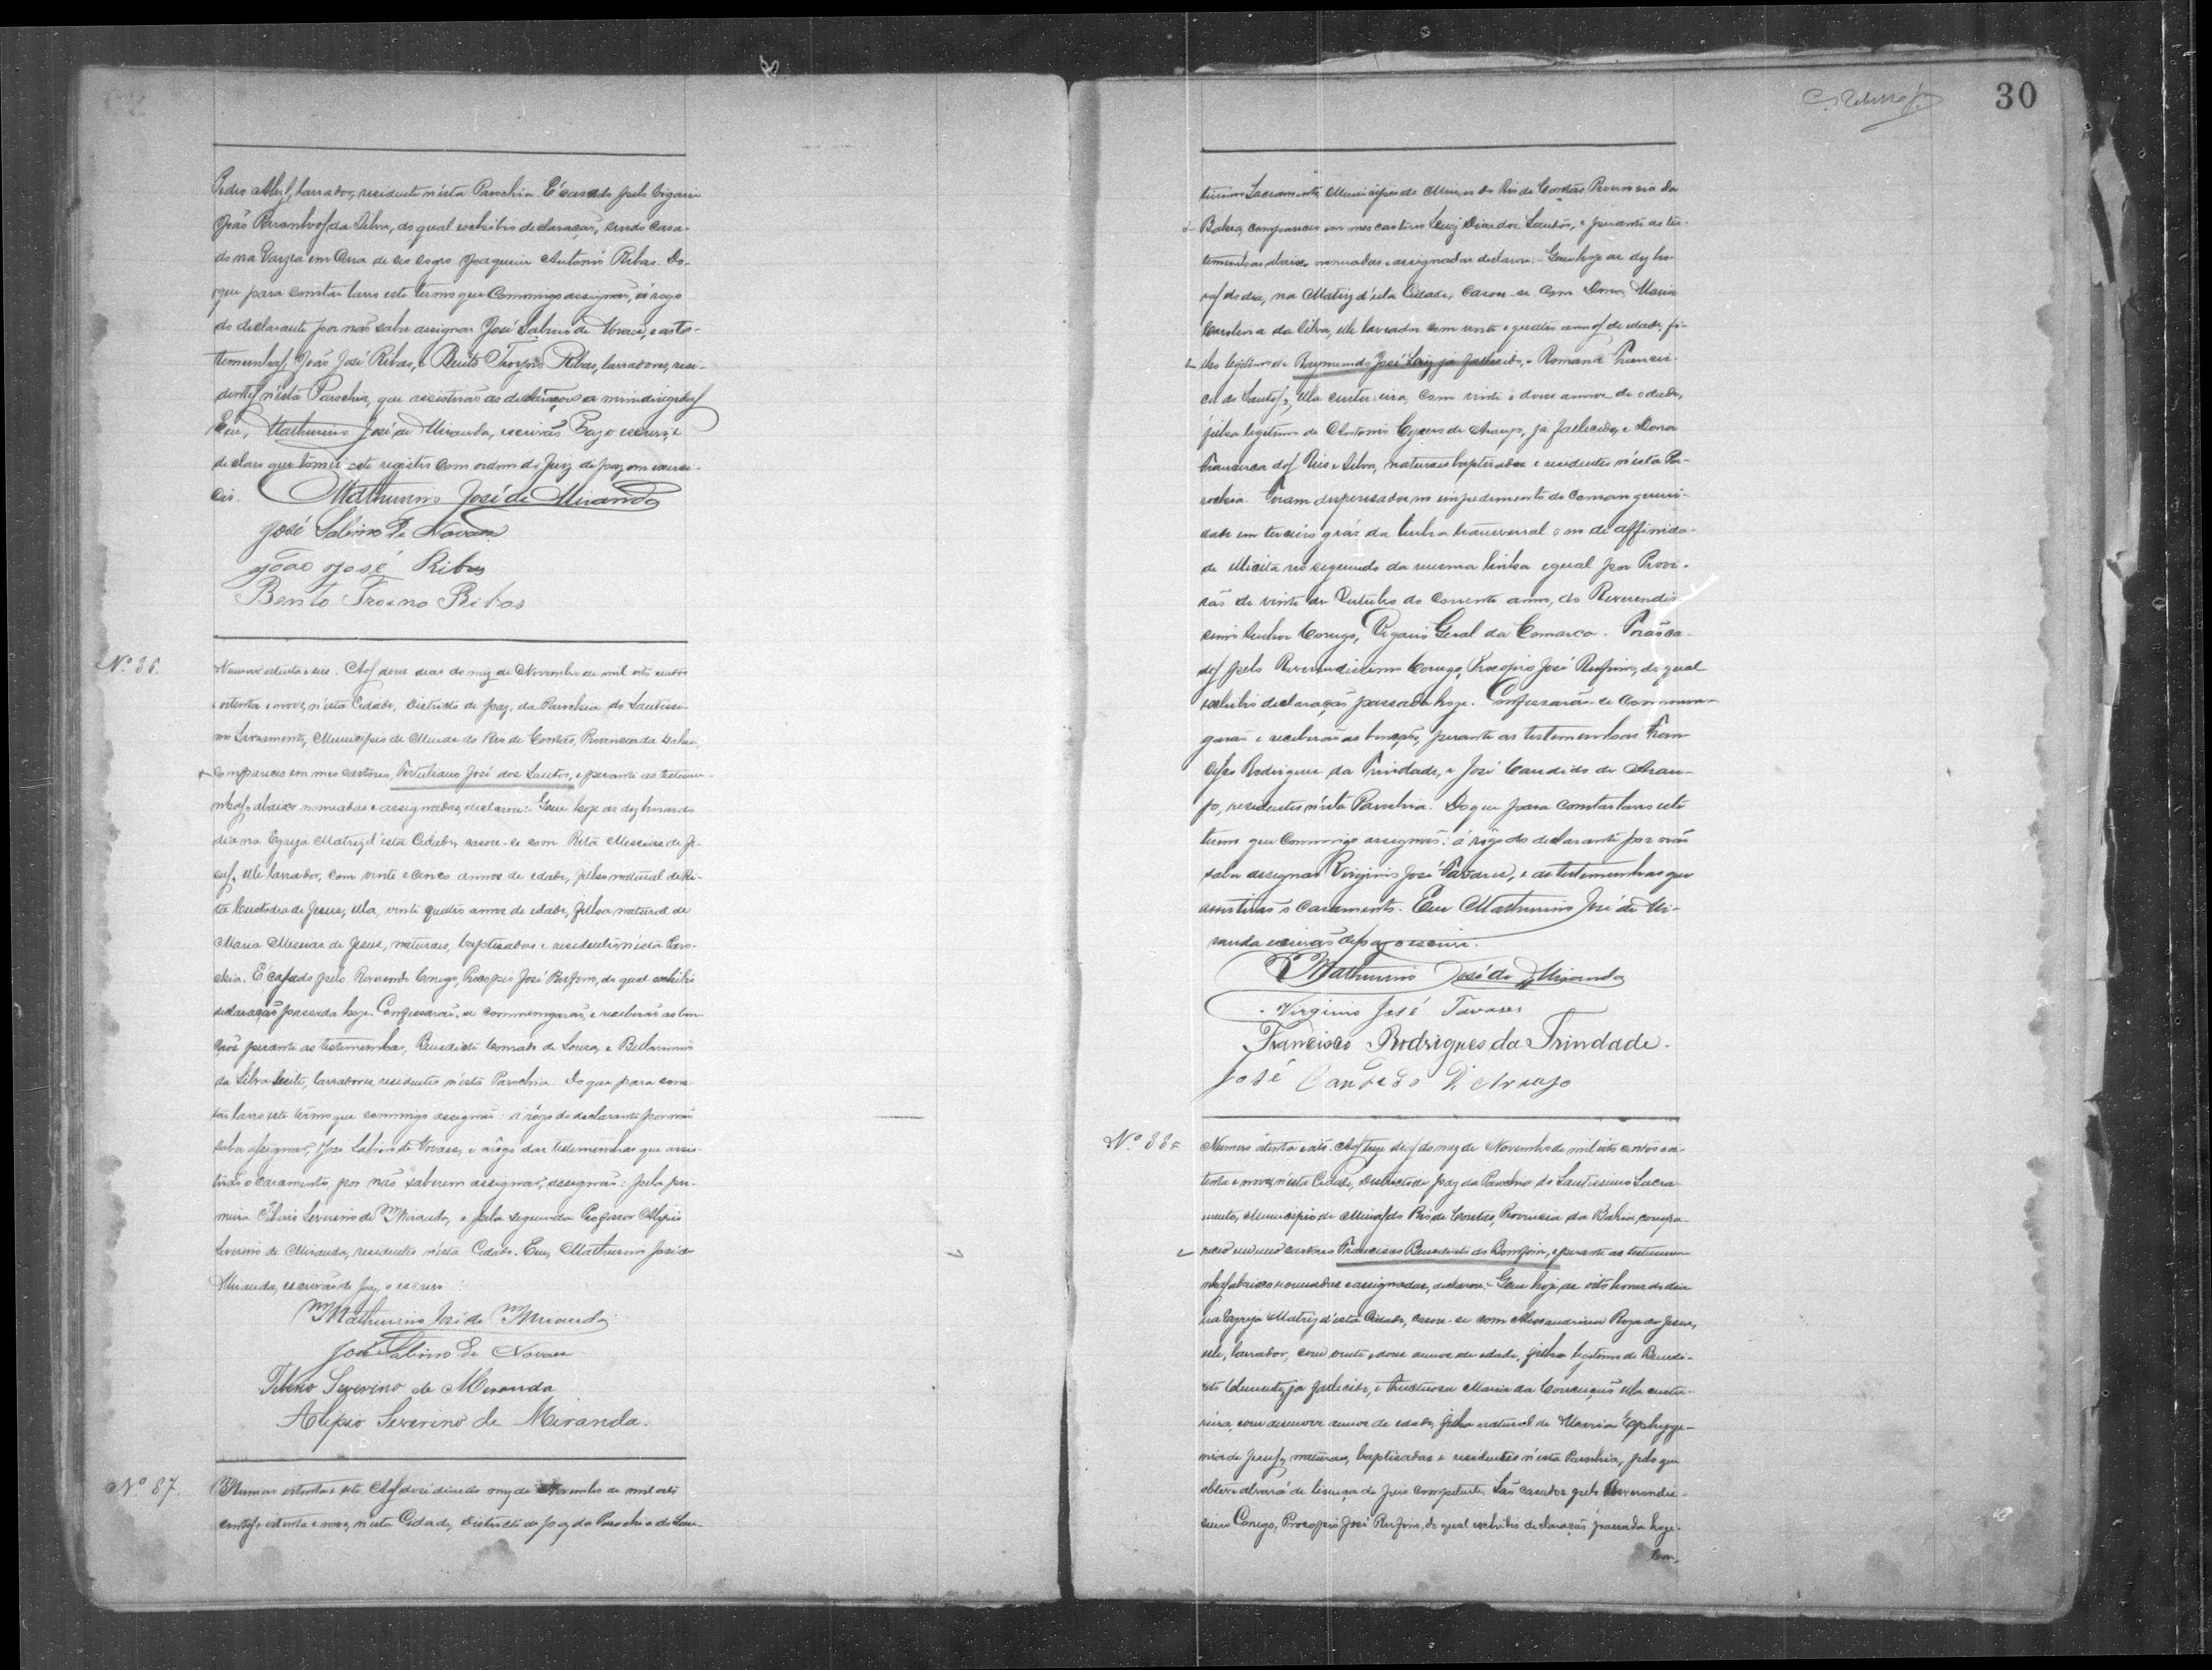 Pedro Alz, lavrador, residente n'esta Parochia. É casado pelo Vigario
João Paranhos da Silva, do qual exhibio declaração, sendo casa-
do na Varzea em casa de seo sogro Joaquim Antonio Ribas. Do
que para constar lavro este termo que commigo assignão, á rogo
do declarante por não saber assignar José Sabino de Novaes, e as tes-
temunhas João José Ribas, e Bento Ribas, lavradores, resi-
dentes n'esta Parochia, que assistirão as declarações
Eu, Mathurino José de Miranda, escrivão
declaro que tomei este registro com ordem do Juiz de paz em exerci-
cio. Mathurino José de Miranda
José Sabino de Novaes
João José Ribas
Bento Ribas
Nº 86.
Numero oitenta e seis. Aos doze dias do mez de Novembro de mil oito centos
e oitenta e nove, n'esta Cidade, Districto de paz, da Parochia do Santissi-
mo Sacramento, Municipio de Minas do Rio de Contas, Provincia da Bahia,
compareceo em meo cartorio, Tertuliano José dos Santos, e perante as testemu-
nhas abaixo nomeadas e assignadas, declarou: Que hoje as dez horas do
dia na Egreja Matriz d'esta Cidade, casou-se com Rita Messias de Je-
sus, elle lavrador, com vinte e cinco annos de edade, filho natural de Ri-
ta Custodia de Jesus, ella, vinte quatro annos de edade, filha natural de
Maria Messias de Jesus, naturaes, baptisados e residentes n'esta Paro-
chia. É casado pelo Reverendo Conego, Procopio José Rufino, do qual exhibio
declaração passada hoje. Confessarão-se commungarão, e receberão as ben-
çãos perante as testemunhas, Benedicto Conrado de Souza, e Bellarmino
da Silva Leite, lavradores, residentes n'esta Parochia. Do que para cons-
tar lavro este termo que commigo assignão: a rogo do declarante por não
saber assignar, José Sabino de Novaes, e a rogo das testemunhas que assis-
tirão o casamento, por não saberem assignar, assignão: pela pri-
meira Severino de Miranda, e pela segunda Professor Alipio
Severino de Miranda, residentes n'esta Cidade. Eu, Mathurino José de
Miranda, escrivão de Paz, o escrevi.
Mathurino José de Miranda
José Sabino de Novaes
Severino de Miranda
Alipio Severino de Miranda.
Nº 87.
Numero oitenta e sete. Aos doze dias do mez de Novembro de mil oito
centos e oitenta e nove, n'esta Cidade, Districto de paz da Parochia do San-
30
tissimo Sacramento, Municipio de Minas do Rio de Contas, Provincia da
Bahia, compareceo em meo cartorio Luiz dos Santos, e perante as tes-
temunhas abaixo nomeadas e assignadas declarou: Que hoje as dez ho-
ras do dia, na Matriz d'esta Cidade, casou-se com Dona Maria
Carolina da Silva, elle lavrador com vinte e quatro annos de edade, fi-
lho legitimo de Raymundo José Luiz já fallecido, e Romana Francis-
ca dos Santos, ella costureira, com vinte e dous annos de edade,
filha legitima de Antonio de Araujo, já fallecido, e Dona
Francisca dos Reis e Silva, naturaes baptisados e residentes n'esta Pa-
rochia. Foram dispensados no impedimento de consanguini-
dade em terceiro gráo da linha transversal e no de affinida-
de illicita no segundo da mesma linha egual por Provi-
são de vinte de Outubro do corrente anno, do Reverendis-
simo Senhor Conego, Vigario Geral da Comarca. São casa-
dos pelo Reverendissimo Conego, Procopio José Rufino, do qual
exhibio declaração passada hoje. Confessarão-se commun-
garão e receberão as benções, perante as testemunhas Fran-
cisco Rodrigues da Trindade, e José Candido de Arau-
jo, residentes n'esta Parochia. Do que para constar lavro este
termo que commigo assignão: á rogo do declarante por não
saber assignar Virginio José Tavares, e as testemunhas que
assistirão o casamento. Eu Mathurino José de Mi-
randa escrivão de paz o escrevi.
Mathurino José de Miranda
Virginio José Tavares
Francisco Rodrigues da Trindade.
José Candido d'Araujo
Nº 88.
Numero oitenta e oito. Aos treze dias do mez de Novembro de mil oito centos e oi-
tenta e nove, n'esta Cidade, Districto de paz da Parochia do Santissimo Sacra-
mento, Municipio de Minas do Rio de Contas, Provincia da Bahia, compa-
receo em meo cartorio Francisco Benedicto do Bomfim, e perante as testemu-
nhas abaixo nomeadas e assignadas, declarou: Que hoje as oito horas do dia
na Egreja Matriz d'esta Cidade, casou-se com Alexandrina Roza de Jesus,
elle, lavrador, com vinte e dous annos de edade, filho legitimo de Benedi-
cto Clemente, já fallecido, e Fructuosa Maria da Conceição ella costu-
reira, com desenove annos de edade, filha natural de Maria Ephyge-
nia de Jesus, naturaes, baptisados e residentes n'esta Parochia, pelo que
obteve alvará de licença do Juiz competente. São casados pelo Reverendis-
simo Conego, Procopio José Rufino, do qual exhibio declaração passada hoje.
Con-